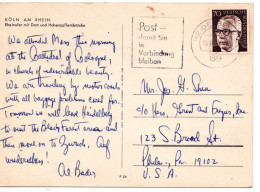 KÖLN AM RHEIN
Rheinufer mit Dom und Hohenzollernbrücke
We attended Mass this morning
at the Cathedral of Cologne,
a church of indescribable beauty.
We are traveling by motor coach
with all baggage problems cared for.
Tomorrow we will leave Heidelberg
to visit the Black Forest area and
then move on to Zurich. Auf
wiedersehen!
Post -
damit Sie
in
Verbindung
bleiben
70
DEUTSCHE
Mrs.
c/o Mrs. and
123 S. Broad St.
Phila., Pa. 19102
U.S.A.